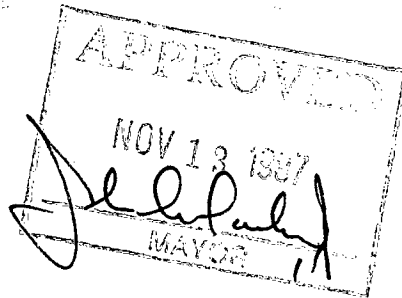 APPROVED
NOV 13 1987
MAYOR